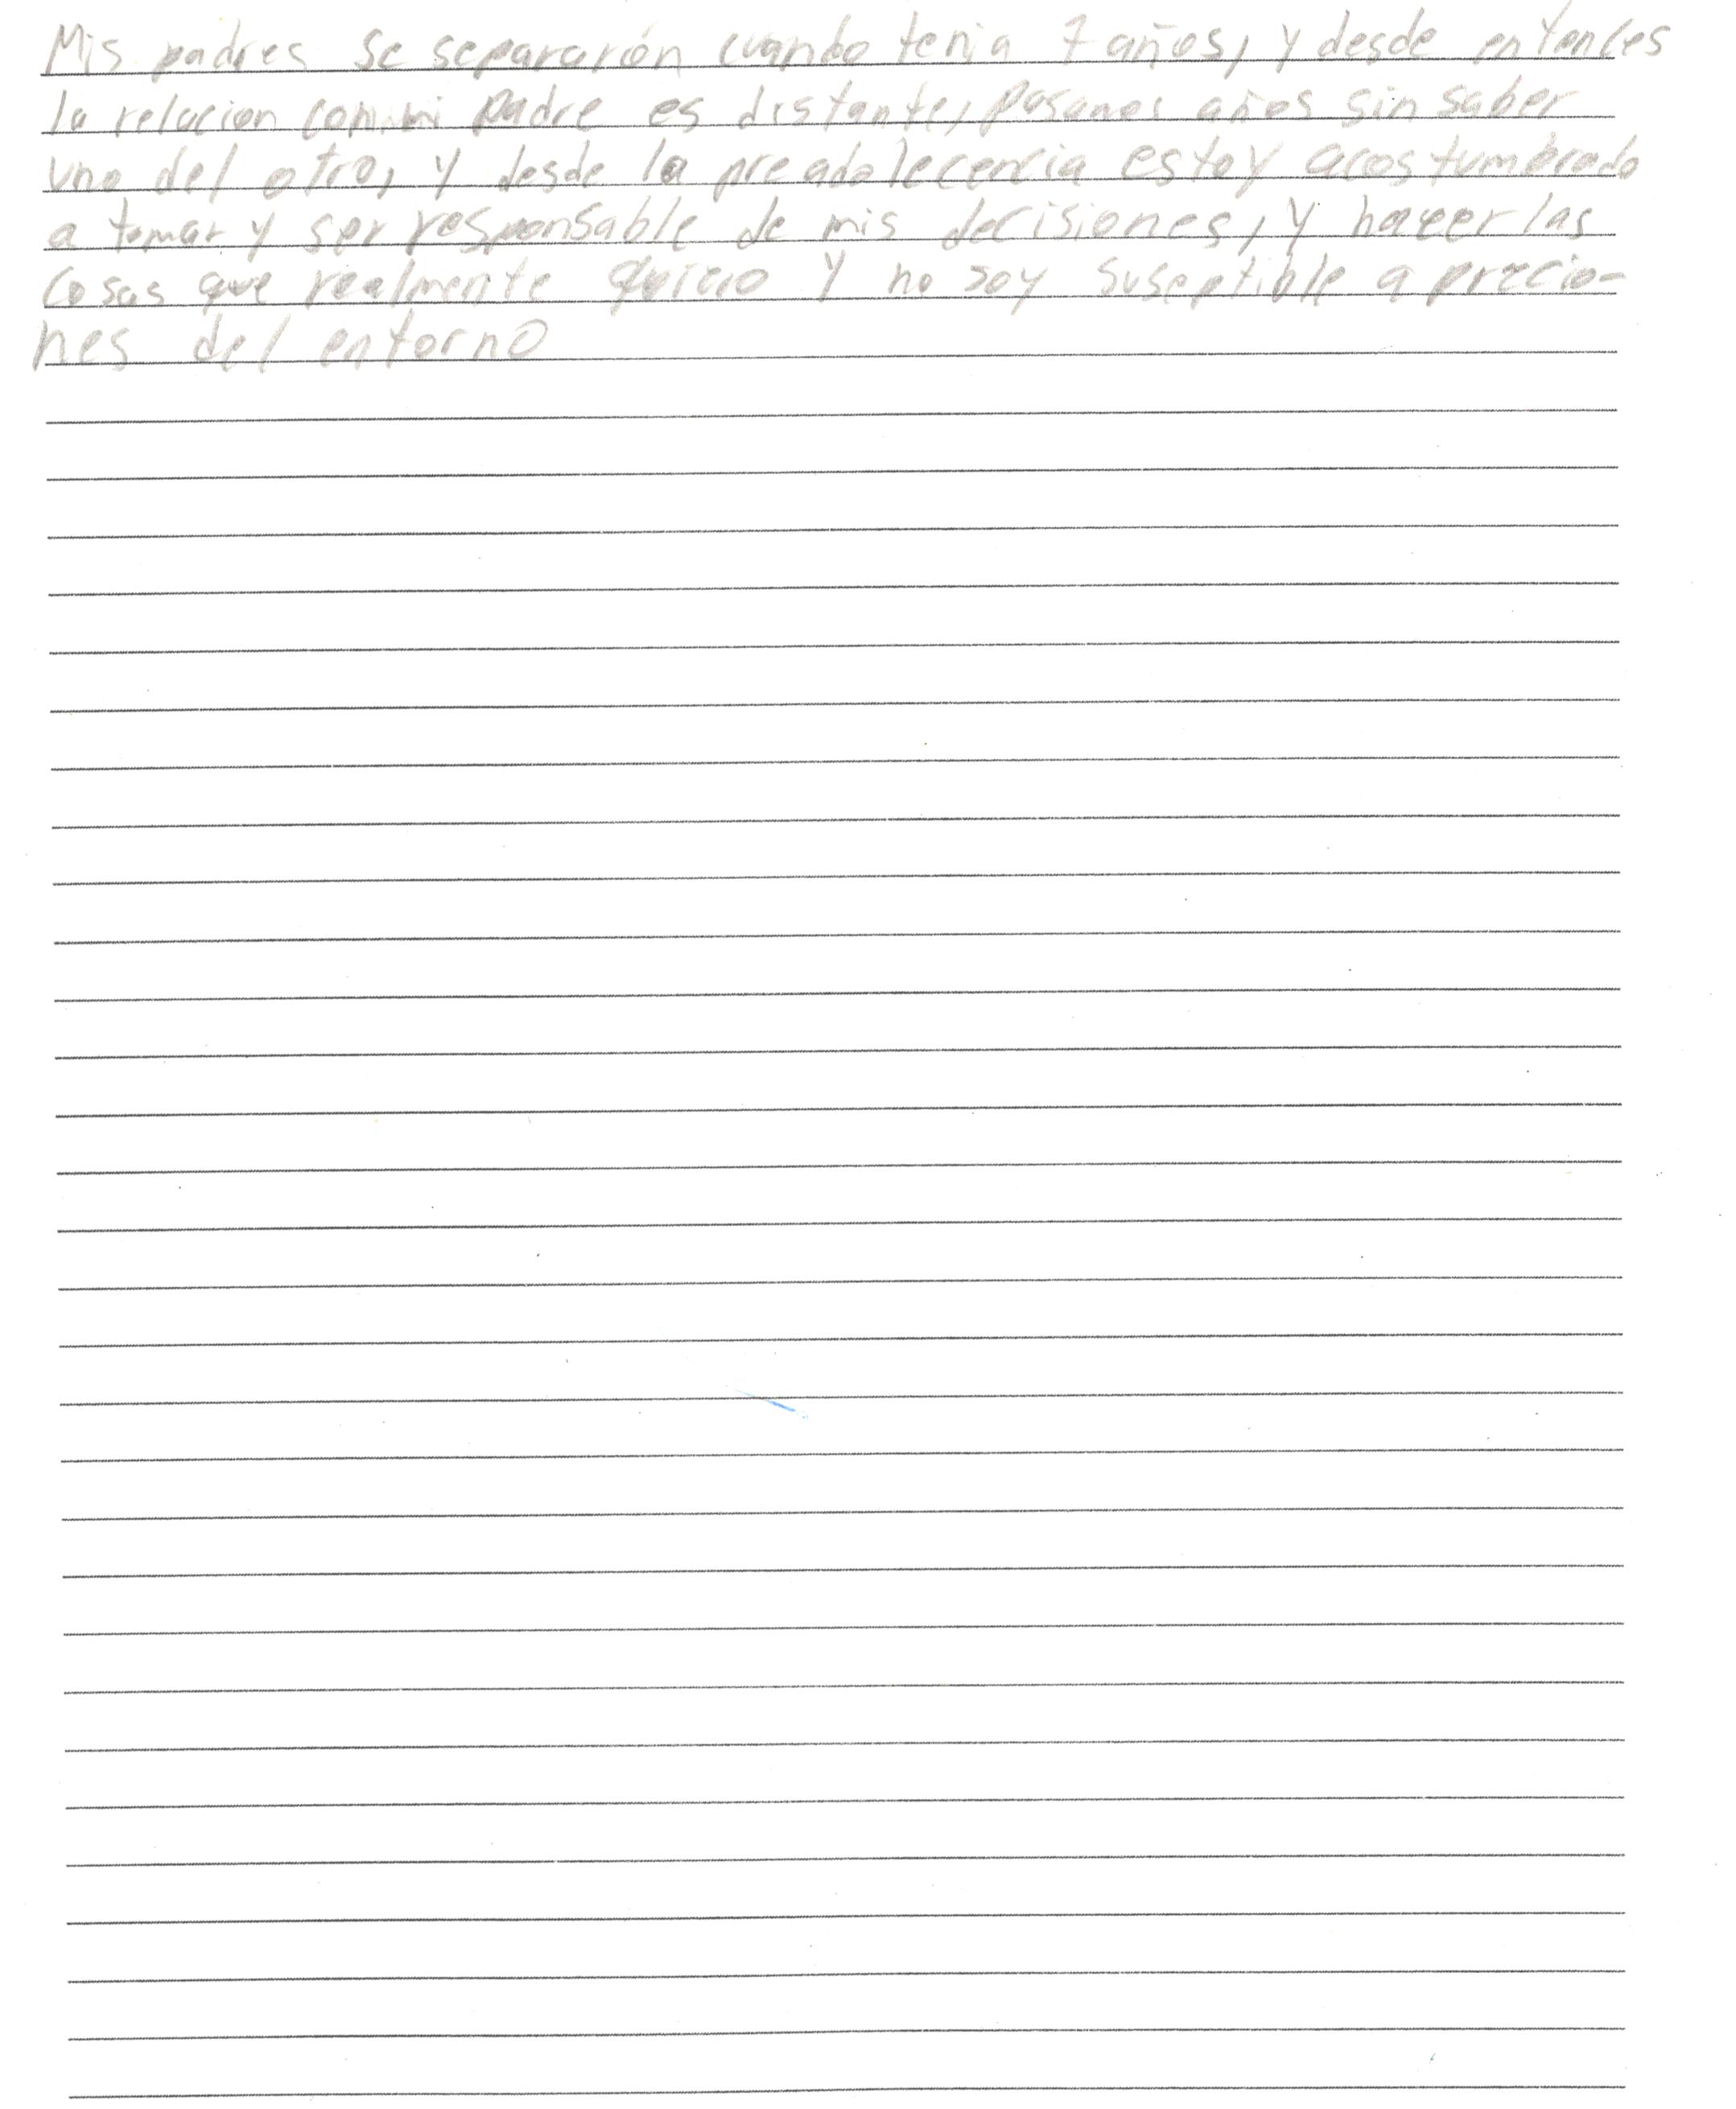 Mis padres se separarón cuando tenia 7 años, y desde entonces
la relacion con mi padre es distante, pasamos años sin saber
uno del otro, y desde la preadolecencia estoy acostumbrado
a tomar y ser responsable de mis decisiones, y hacer las
cosas que realmente quiero y no soy suseptible a precio-
nes del entorno